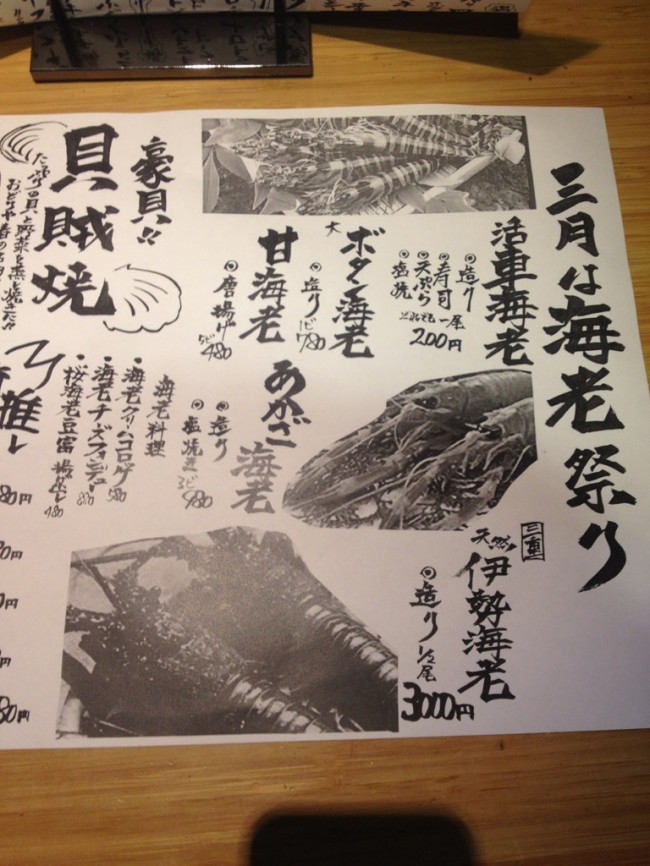 三月は海老祭り
活車海老
◎造り
◎寿司
◎天ぷら
◎塩焼
どれでも一尾
200円
大
ボタン海老
◎造り1ピ780
甘海老
◎唐揚げ
5ピ480
あかざ海老
◎造り
◎塩焼き3ピ980
海老料理
・海老クリームコロッケ580
・海老チーズフォンデュー880
・桜海老豆富 揚出し480
三重
天然
伊勢海老
◎造り1/2尾
3000円
豪貝!!
貝賊焼
たっぷりの貝と野菜を蒸し焼きた!!
推し
80円